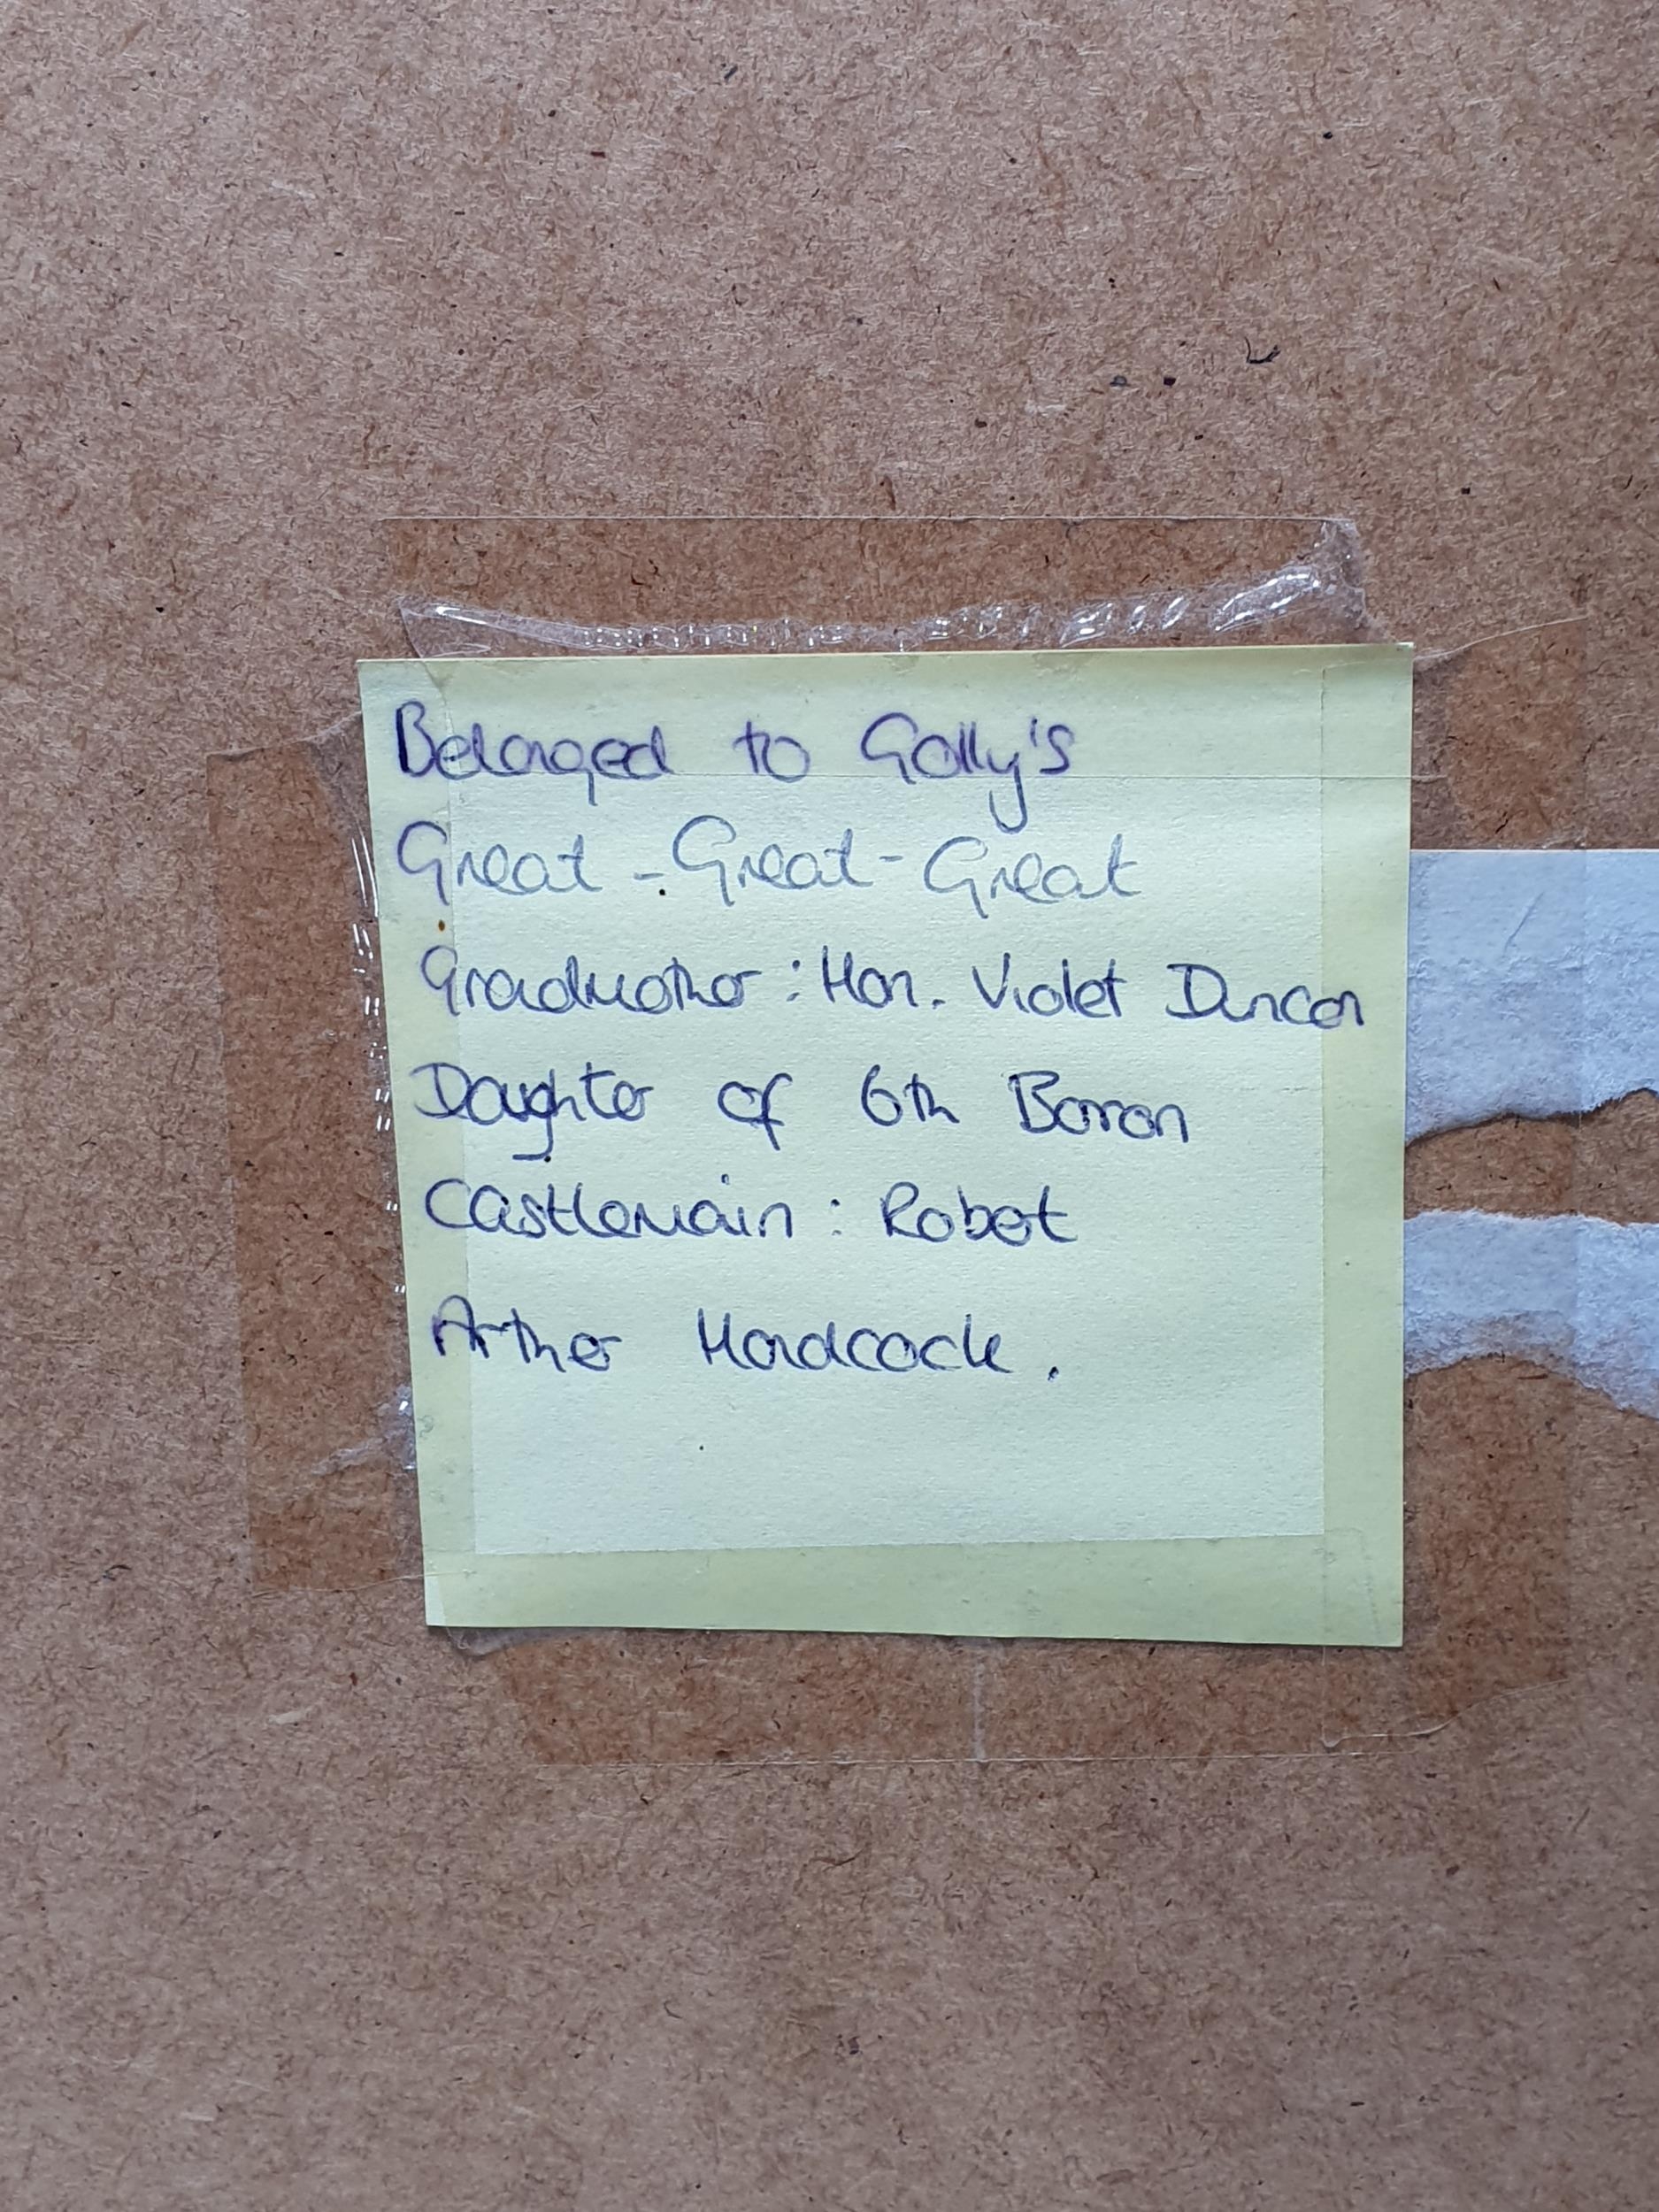 Belonged to Golly's
Great - Great - Great
Grandmother : Hon. Violet Duncan
Daughter of 6th Baron
Castlemain : Robert
Arther Handcock.